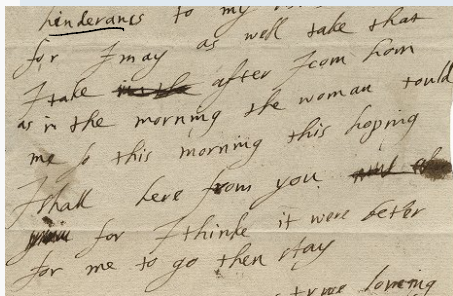 hinderans to my
for I may as well take that
I take after I com hom
as in the morning the woman tould
me so this morning this hoping
I shall here from you
for I thinke it were beter
for me to go then stay
true loving